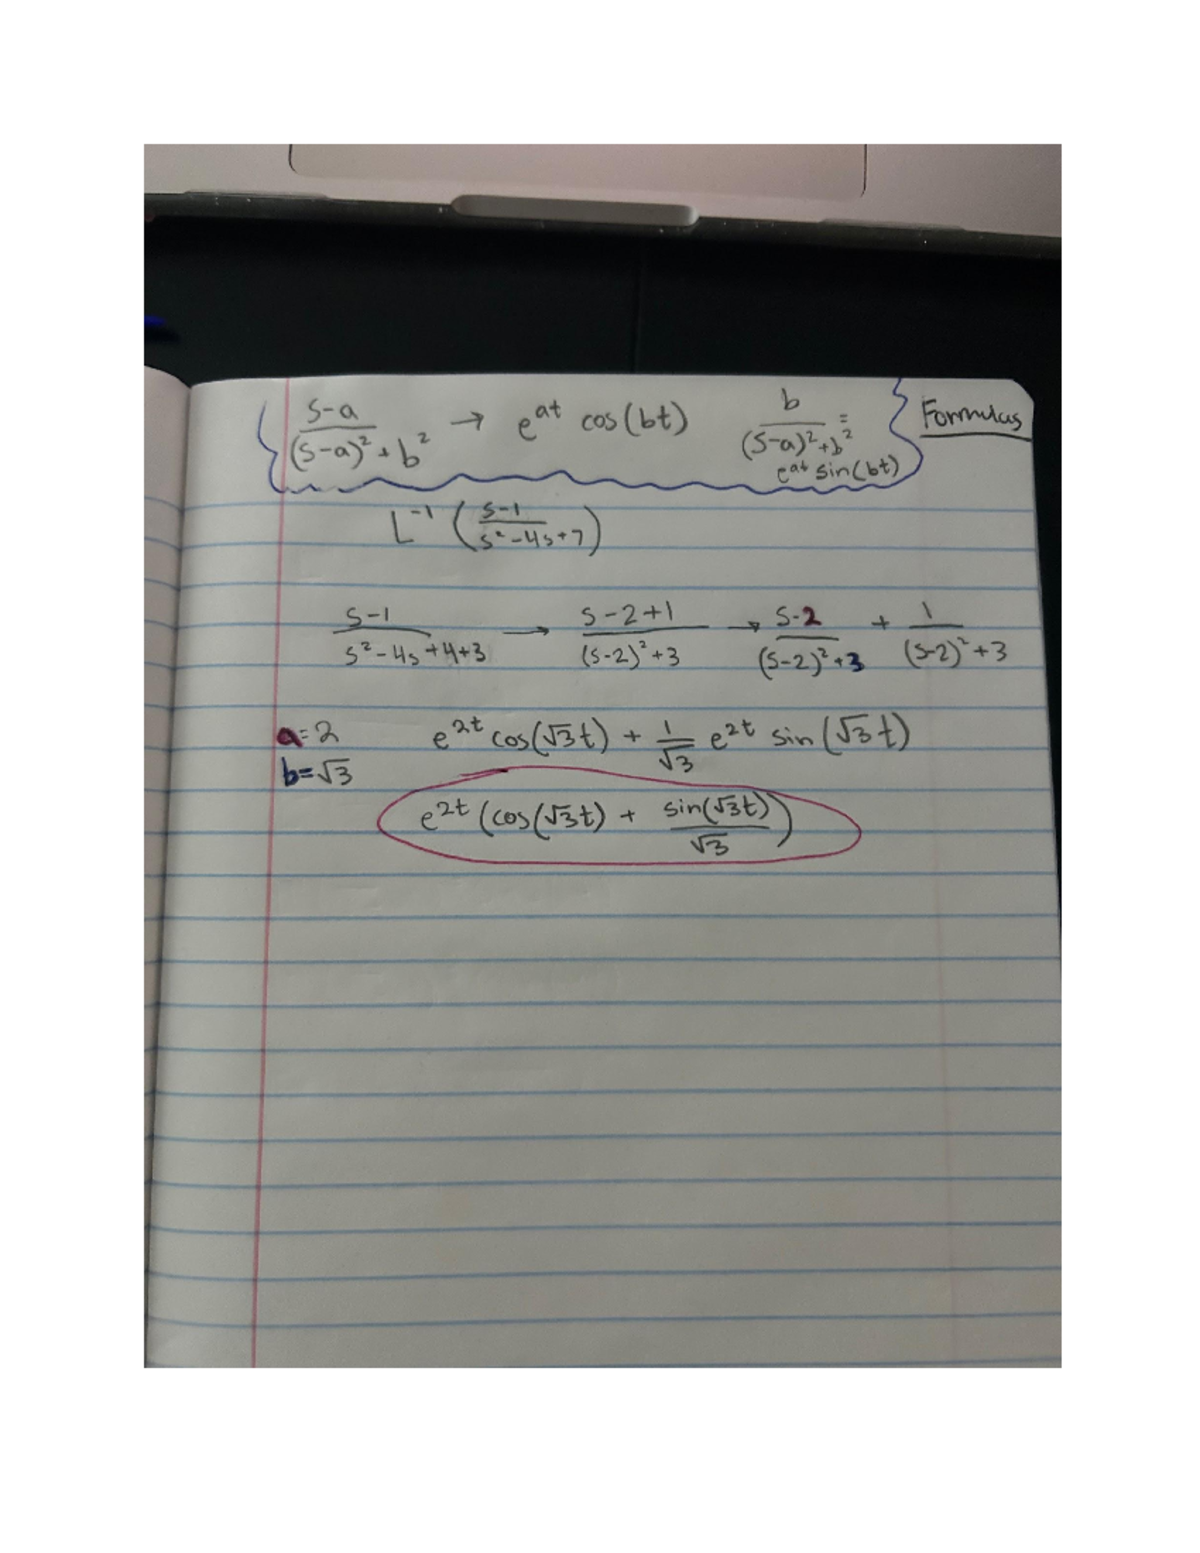 s-a/(s-a)²+b² → e^at cos(bt)   b/(s-a)²+b² = e^at sin(bt)   Formulas
L⁻¹ ( s-1/s²-4s+7 )
s-1/s²-4s+4+3 → s-2+1/(s-2)²+3 → s-2/(s-2)²+3 + 1/(s-2)²+3
a=2   e^2t cos(√3t) + 1/√3 e^2t sin(√3t)
b=√3
e^2t (cos(√3t) + sin(√3t)/√3)